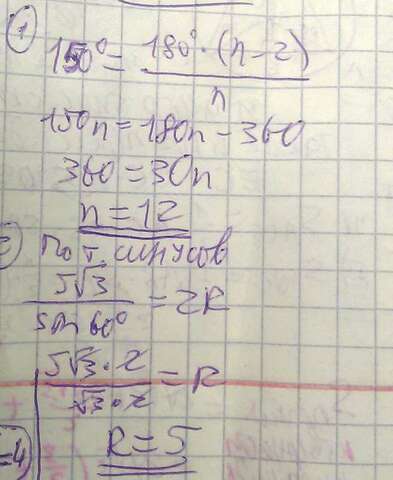 1
150° = 180° · (n - 2) / n
150n = 180n - 360
360 = 30n
n = 12
2 По т. синусов
5√3 / sin 60° = 2R
5√3 · 2 / √3 · 2 = R
R = 5
=4